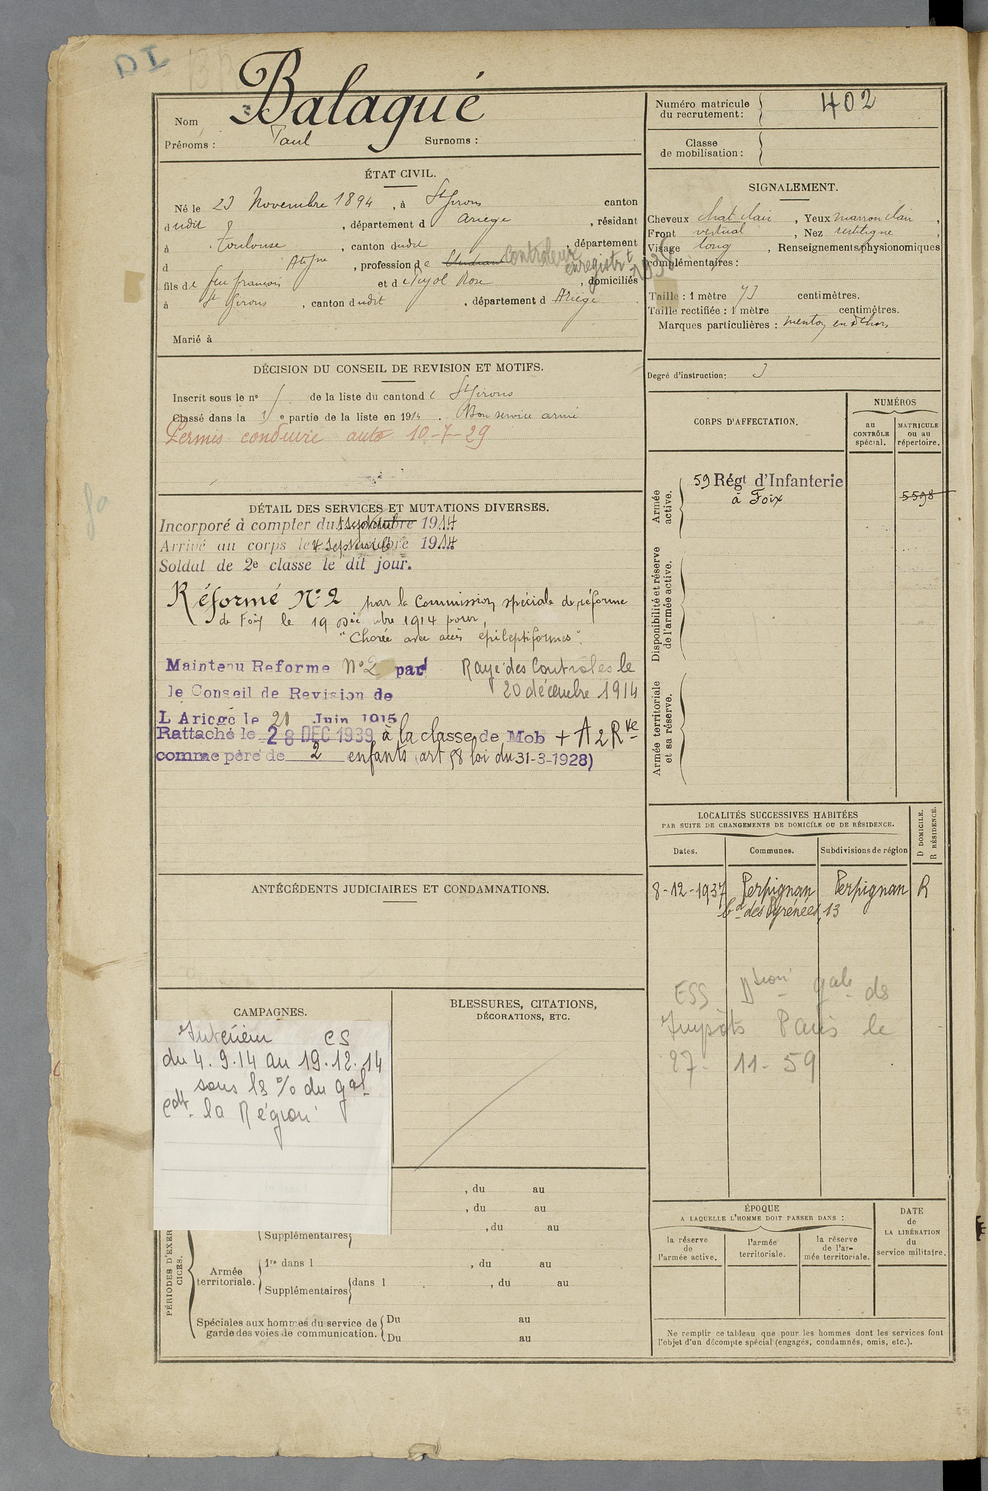 DI
Nom Balagué
Prénoms : Paul Surnoms :
Numéro matricule du recrutement : 402
Classe de mobilisation :
ÉTAT CIVIL.
Né le 23 Novembre 1894, à St Girons canton
dudit, département d Ariège, résidant
à Toulouse, canton dudit, département
d, profession de Etudiant Controleur enregistrt 1938
fils de feu françois et de Pujol Rose, domiciliés
à St Girons, canton dudit, département d Ariège.
Marié à
SIGNALEMENT.
Cheveux chat clair, Yeux marron clair,
Front vertical, Nez rectiligne
Visage long, Renseignements physionomiques
complémentaires :
Taille : 1 mètre 73 centimètres.
Taille rectifiée : 1 mètre centimètres.
Marques particulières : menton en dehors
Degré d'instruction : 3
DÉCISION DU CONSEIL DE REVISION ET MOTIFS.
Inscrit sous le no de la liste du canton de St Girons
Classé dans la 1 e partie de la liste en 1914. Bon service armé
Permis conduire auto 10-7-29
DÉTAIL DES SERVICES ET MUTATIONS DIVERSES.
Incorporé à compter du septembre 1914
Arrivé au corps le 4 septembre 1914
Soldat de 2e classe le dit jour.
Réformé No 2 par la Commission spéciale de réforme
de Foix le 19 Décembre 1914 pour,
"Chorée avec accès épileptiformes".
Maintenu Reforme No 2 par
le Conseil de Revision de
L'Ariège le 21 Juin 1915
Rayé des Contrôles le
20 décembre 1914
Rattaché le 28 DEC 1939 à la classe de Mob + A 2 Rve
comme père de 2 enfants (art 58 loi du 31-3-1928)
CORPS D'AFFECTATION.
NUMÉROS
au CONTRÔLE spécial.
MATRICULE ou au répertoire.
Armée active.
59 Régt d'Infanterie
à Foix
5598
Disponibilité et réserve de l'armée active.
Armée territoriale et sa réserve.
LOCALITÉS SUCCESSIVES HABITÉES
PAR SUITE DE CHANGEMENTS DE DOMICILE OU DE RÉSIDENCE.
D DOMICILE. R RÉSIDENCE.
Dates. Communes. Subdivisions de région
8-12-1937 Perpignan Perpignan R
bd des Pyrénées, 13
ESS Dtion gale des
Impôts Paris le
27. 11-59
ANTÉCÉDENTS JUDICIAIRES ET CONDAMNATIONS.
CAMPAGNES.
Intérieur CS
du 4.9.14 au 19.12.14
sous ls % du gal
cdt la Région
BLESSURES, CITATIONS,
DÉCORATIONS, ETC.
, du au
, du au
Supplémentaires , du au
PÉRIODES D'EXERCICES.
Armée territoriale.
1re dans l , du au
Supplémentaires dans l , du au
Spéciales aux hommes du service de garde des voies de communication.
Du au
Du au
ÉPOQUE
A LAQUELLE L'HOMME DOIT PASSER DANS :
la réserve de l'armée active.
l'armée territoriale.
la réserve de l'armée territoriale.
DATE de LA LIBÉRATION du service militaire.
Ne remplir ce tableau que pour les hommes dont les services font
l'objet d'un décompte spécial (engagés, condamnés, omis, etc.).